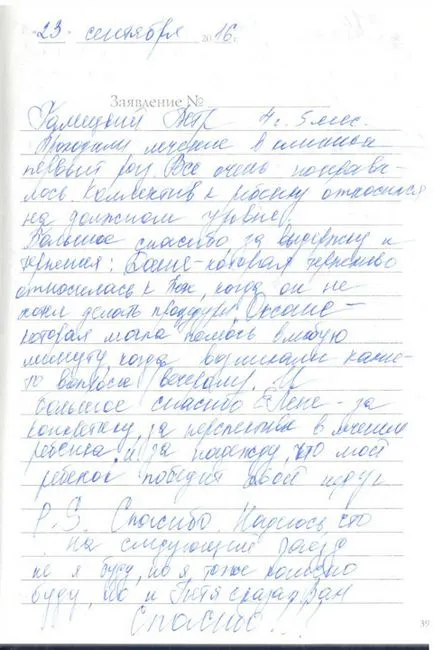 "23" сентября 2016 г.
Заявление №
Камецкий Петр 4 г. 5 мес.
Проходили лечение в клинике
первый раз. Все очень понрави-
лось. Коллектив к ребенку относился
на должном уровне.
Большое спасибо за выдержку и
терпения: которая терпеливо
относилась к тому, когда он не
хотел делать процедуры, Оксане -
которая могла помочь в любую
минуту, когда возникали какие-
то вопросы И
большое спасибо Елене - за
конкретику, за перспективы в лечении
ребенка и за надежду, что мой
ребенок победит свой недуг
P.S. Спасибо. Надеюсь, что
на следующий
не я буду, но я тоже
буду, но и Петя скажет Вам
Спасибо!!!
39